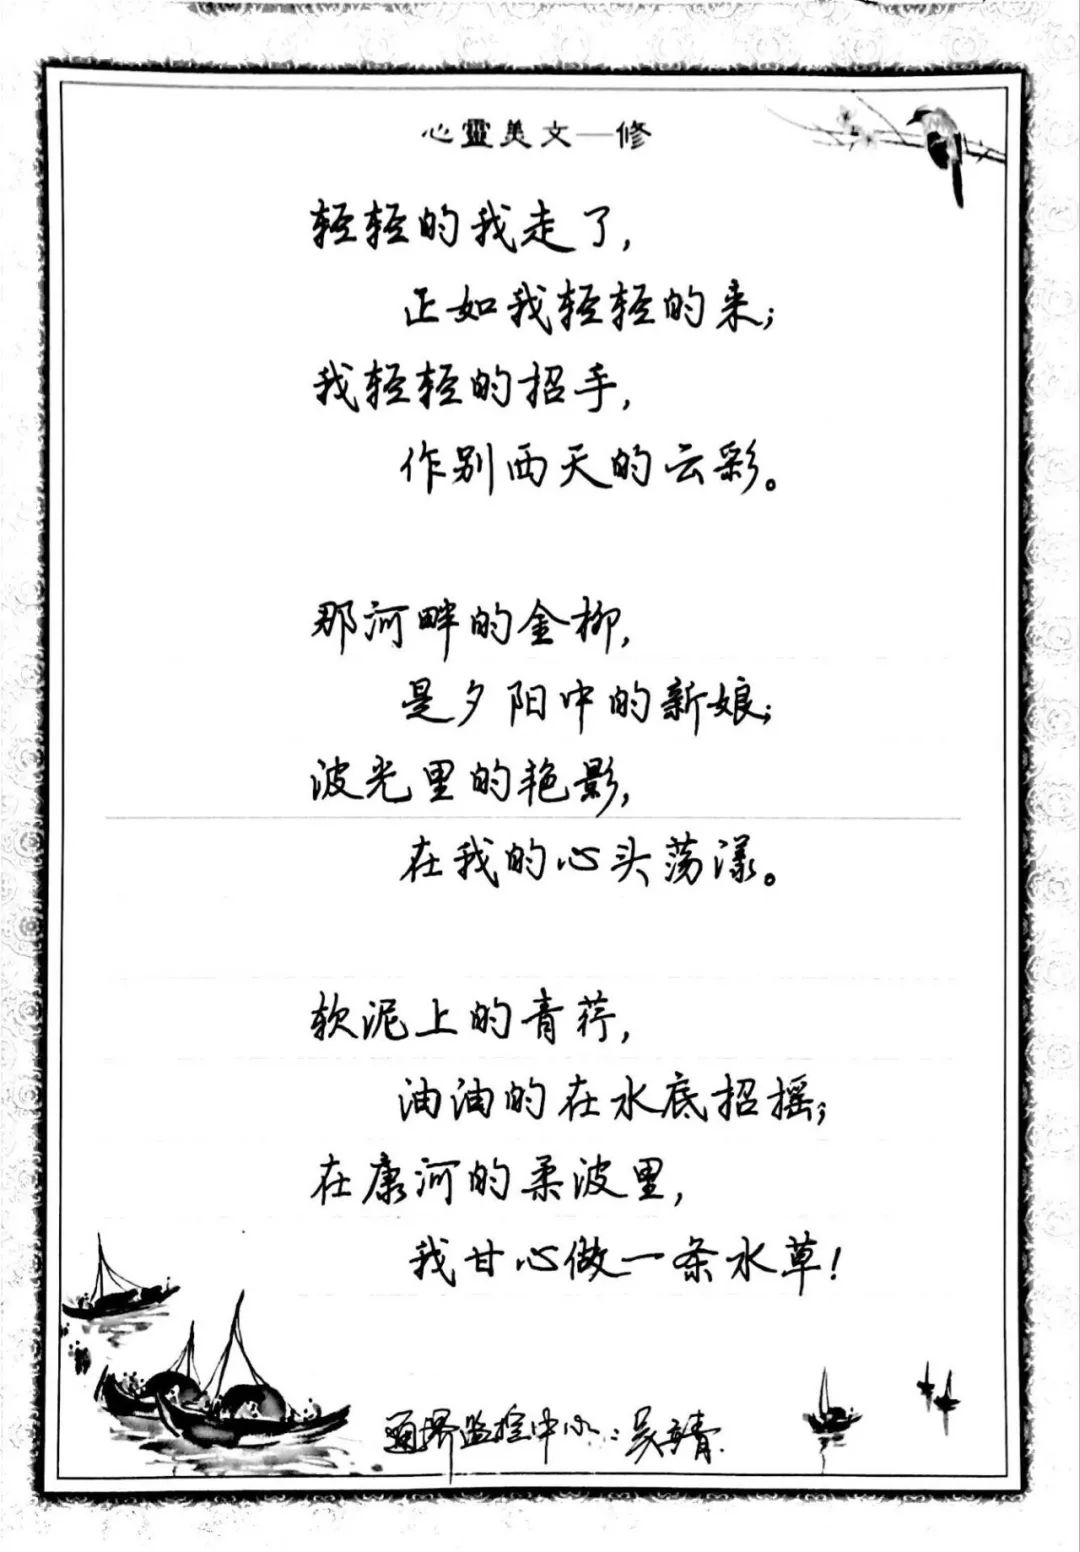 心靈美文—修
轻轻的我走了，
正如我轻轻的来；
我轻轻的招手，
作别西天的云彩。
那河畔的金柳，
是夕阳中的新娘；
波光里的艳影，
在我的心头荡漾。
软泥上的青荇，
油油的在水底招摇；
在康河的柔波里，
我甘心做一条水草！
监控中心：吴